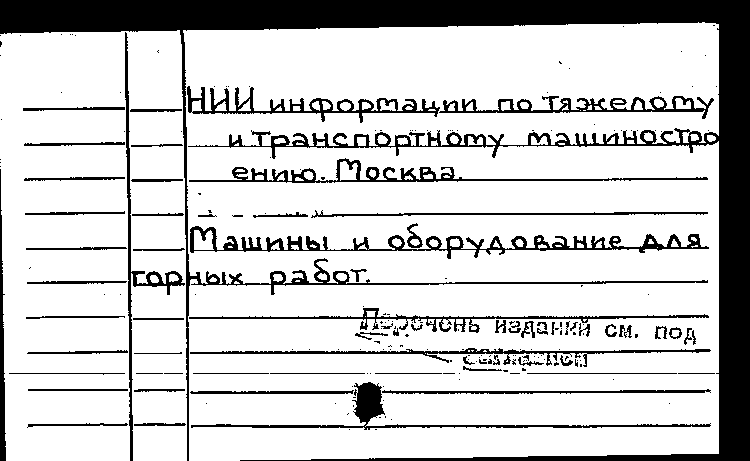 НИИ информации по тяжелому
и транспортному машиностро
ению. Москва.
Машины и оборудование для
горных работ.
Перечень изданий см. под